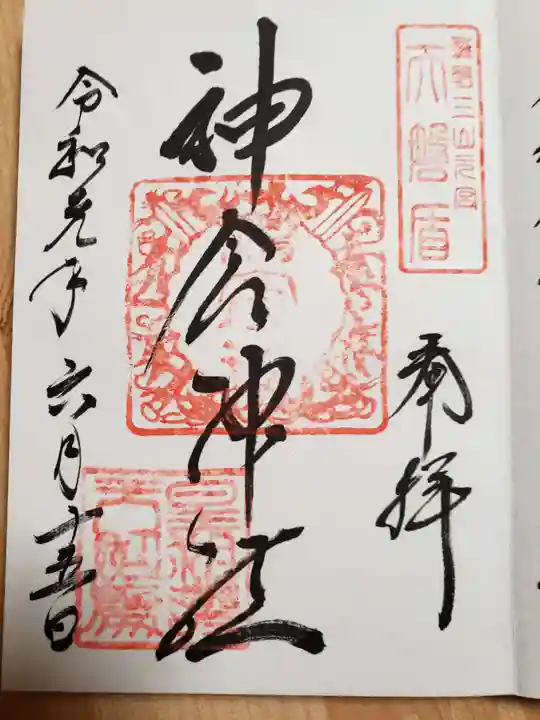 熊野三山元宮
天磐盾
奉拝
神倉神社
令和元年六月十五日